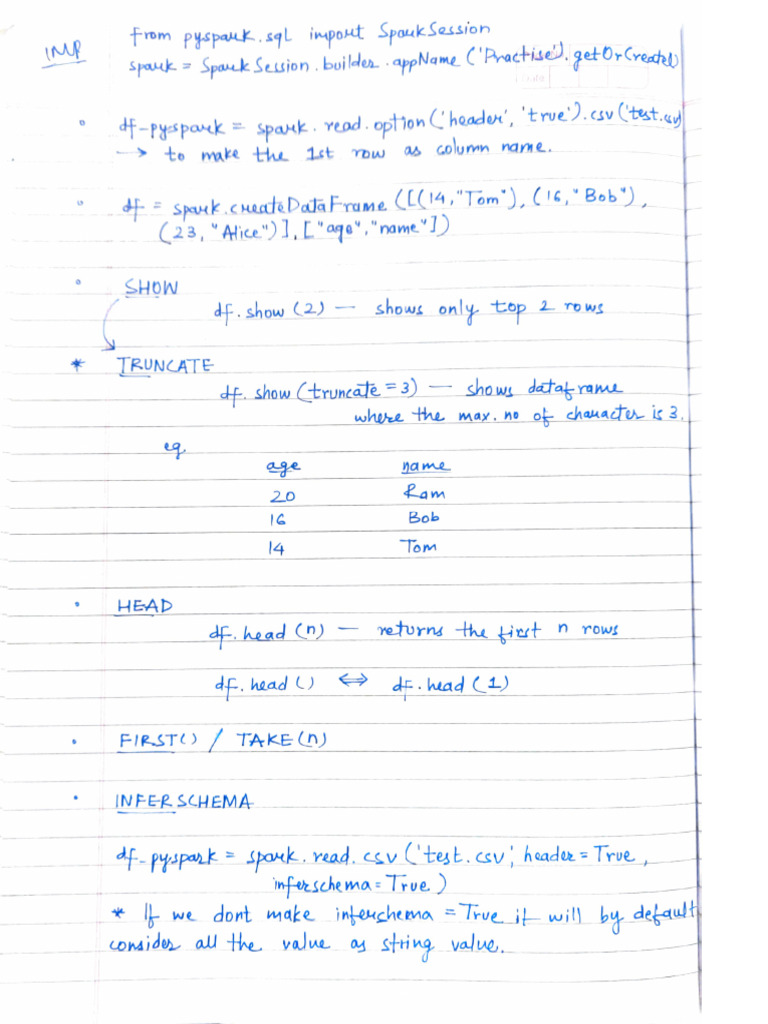 from pyspark.sql import SparkSession
IMP
spark = SparkSession.builder.appName('Practise').getOrCreate()
• df_pyspark = spark.read.option('header', 'true').csv('test.csv')
→ to make the 1st row as column name.
• df = spark.createDataFrame([(14,"Tom"), (16,"Bob"),
(23,"Alice")],["age","name"])
• SHOW
df.show(2) — shows only top 2 rows
* TRUNCATE
df.show(truncate=3) — shows dataframe
where the max. no of character is 3.
eg
age name
20 Ram
16 Bob
14 Tom
• HEAD
df.head(n) — returns the first n rows
df.head() ⇔ df.head(1)
• FIRST() / TAKE(n)
• INFERSCHEMA
df_pyspark = spark.read.csv('test.csv', header=True,
inferschema=True)
* If we dont make inferschema = True it will by default
consider all the value as string value.